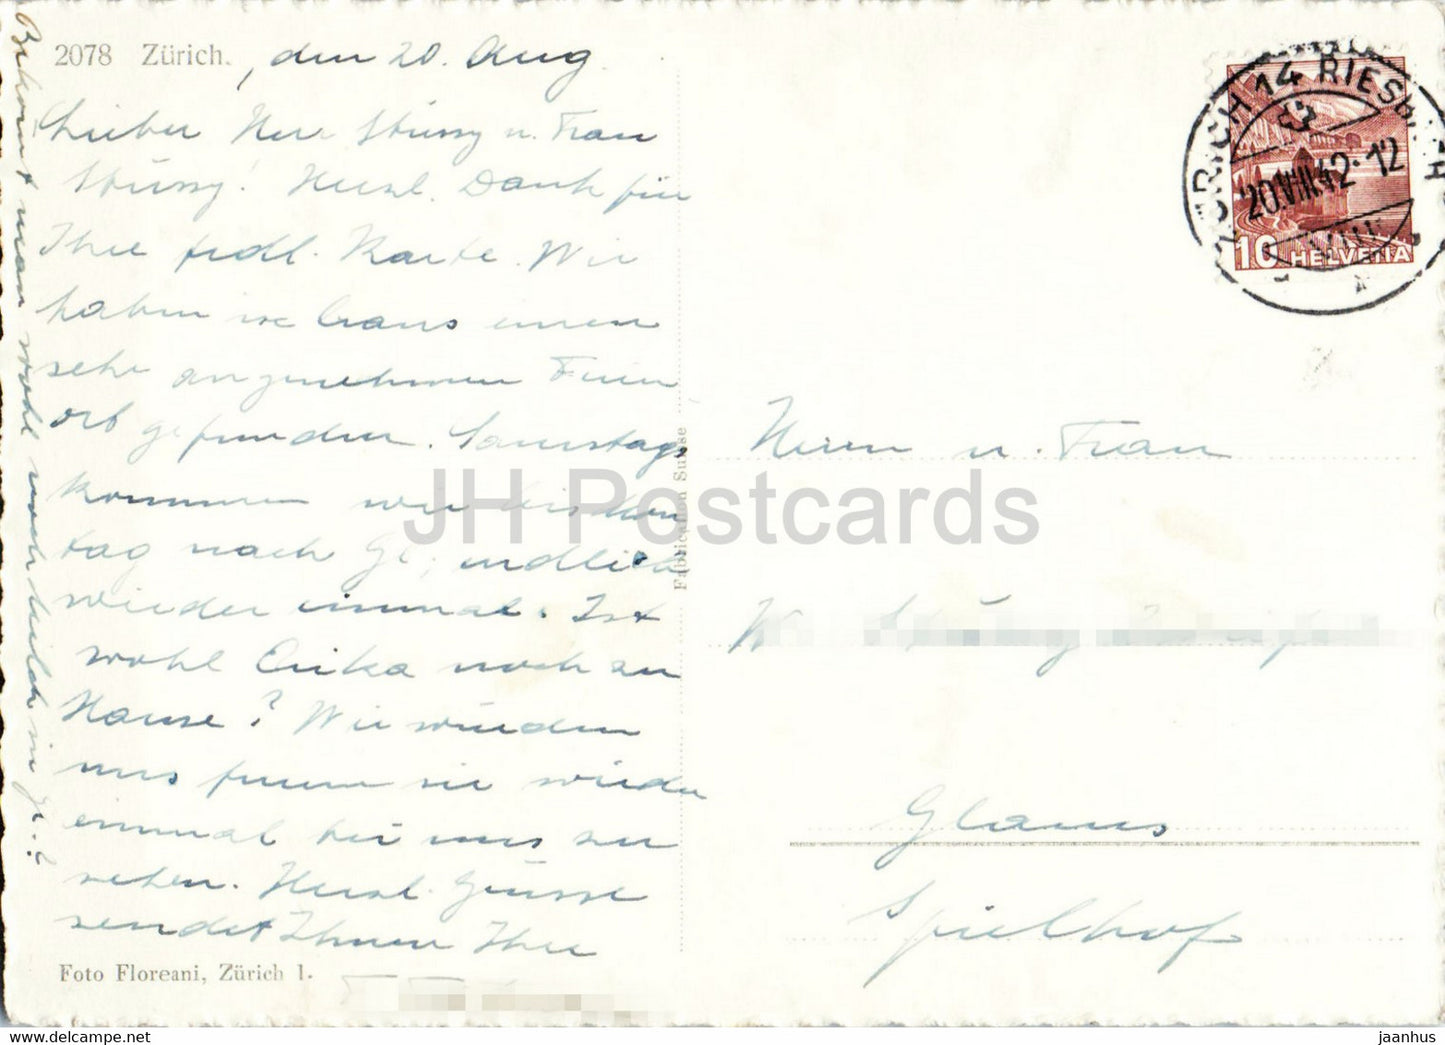 2078 Zürich., den 20. Aug.
Lieber Herr Stüssy u. Frau
Stüssy! Herzl. Dank für
Ihre frdl. Karte. Wir
haben in Craus einen
sehr angenehmen Ferien
ort gefunden. Samstags
kommen wir bis Mon
tag nach Gl., endlich
wieder einmal. Ist
wohl Erika noch zu
Hause? Wir würden
uns freuen sie wieder
einmal bei uns zu
sehen. Herzl. Grüsse
sendet Ihnen Ihre
Bekommt man wohl noch Milch in Gl.?
Foto Floreani, Zürich 1.
Fabrication Suisse
ZÜRICH 14 RIESBACH
20.VIII.42.12
10 HELVETIA
Herrn u. Frau
Stüssy
Glarus
Spielhof
JH Postcards
www.hippostcard.com
jaanhus